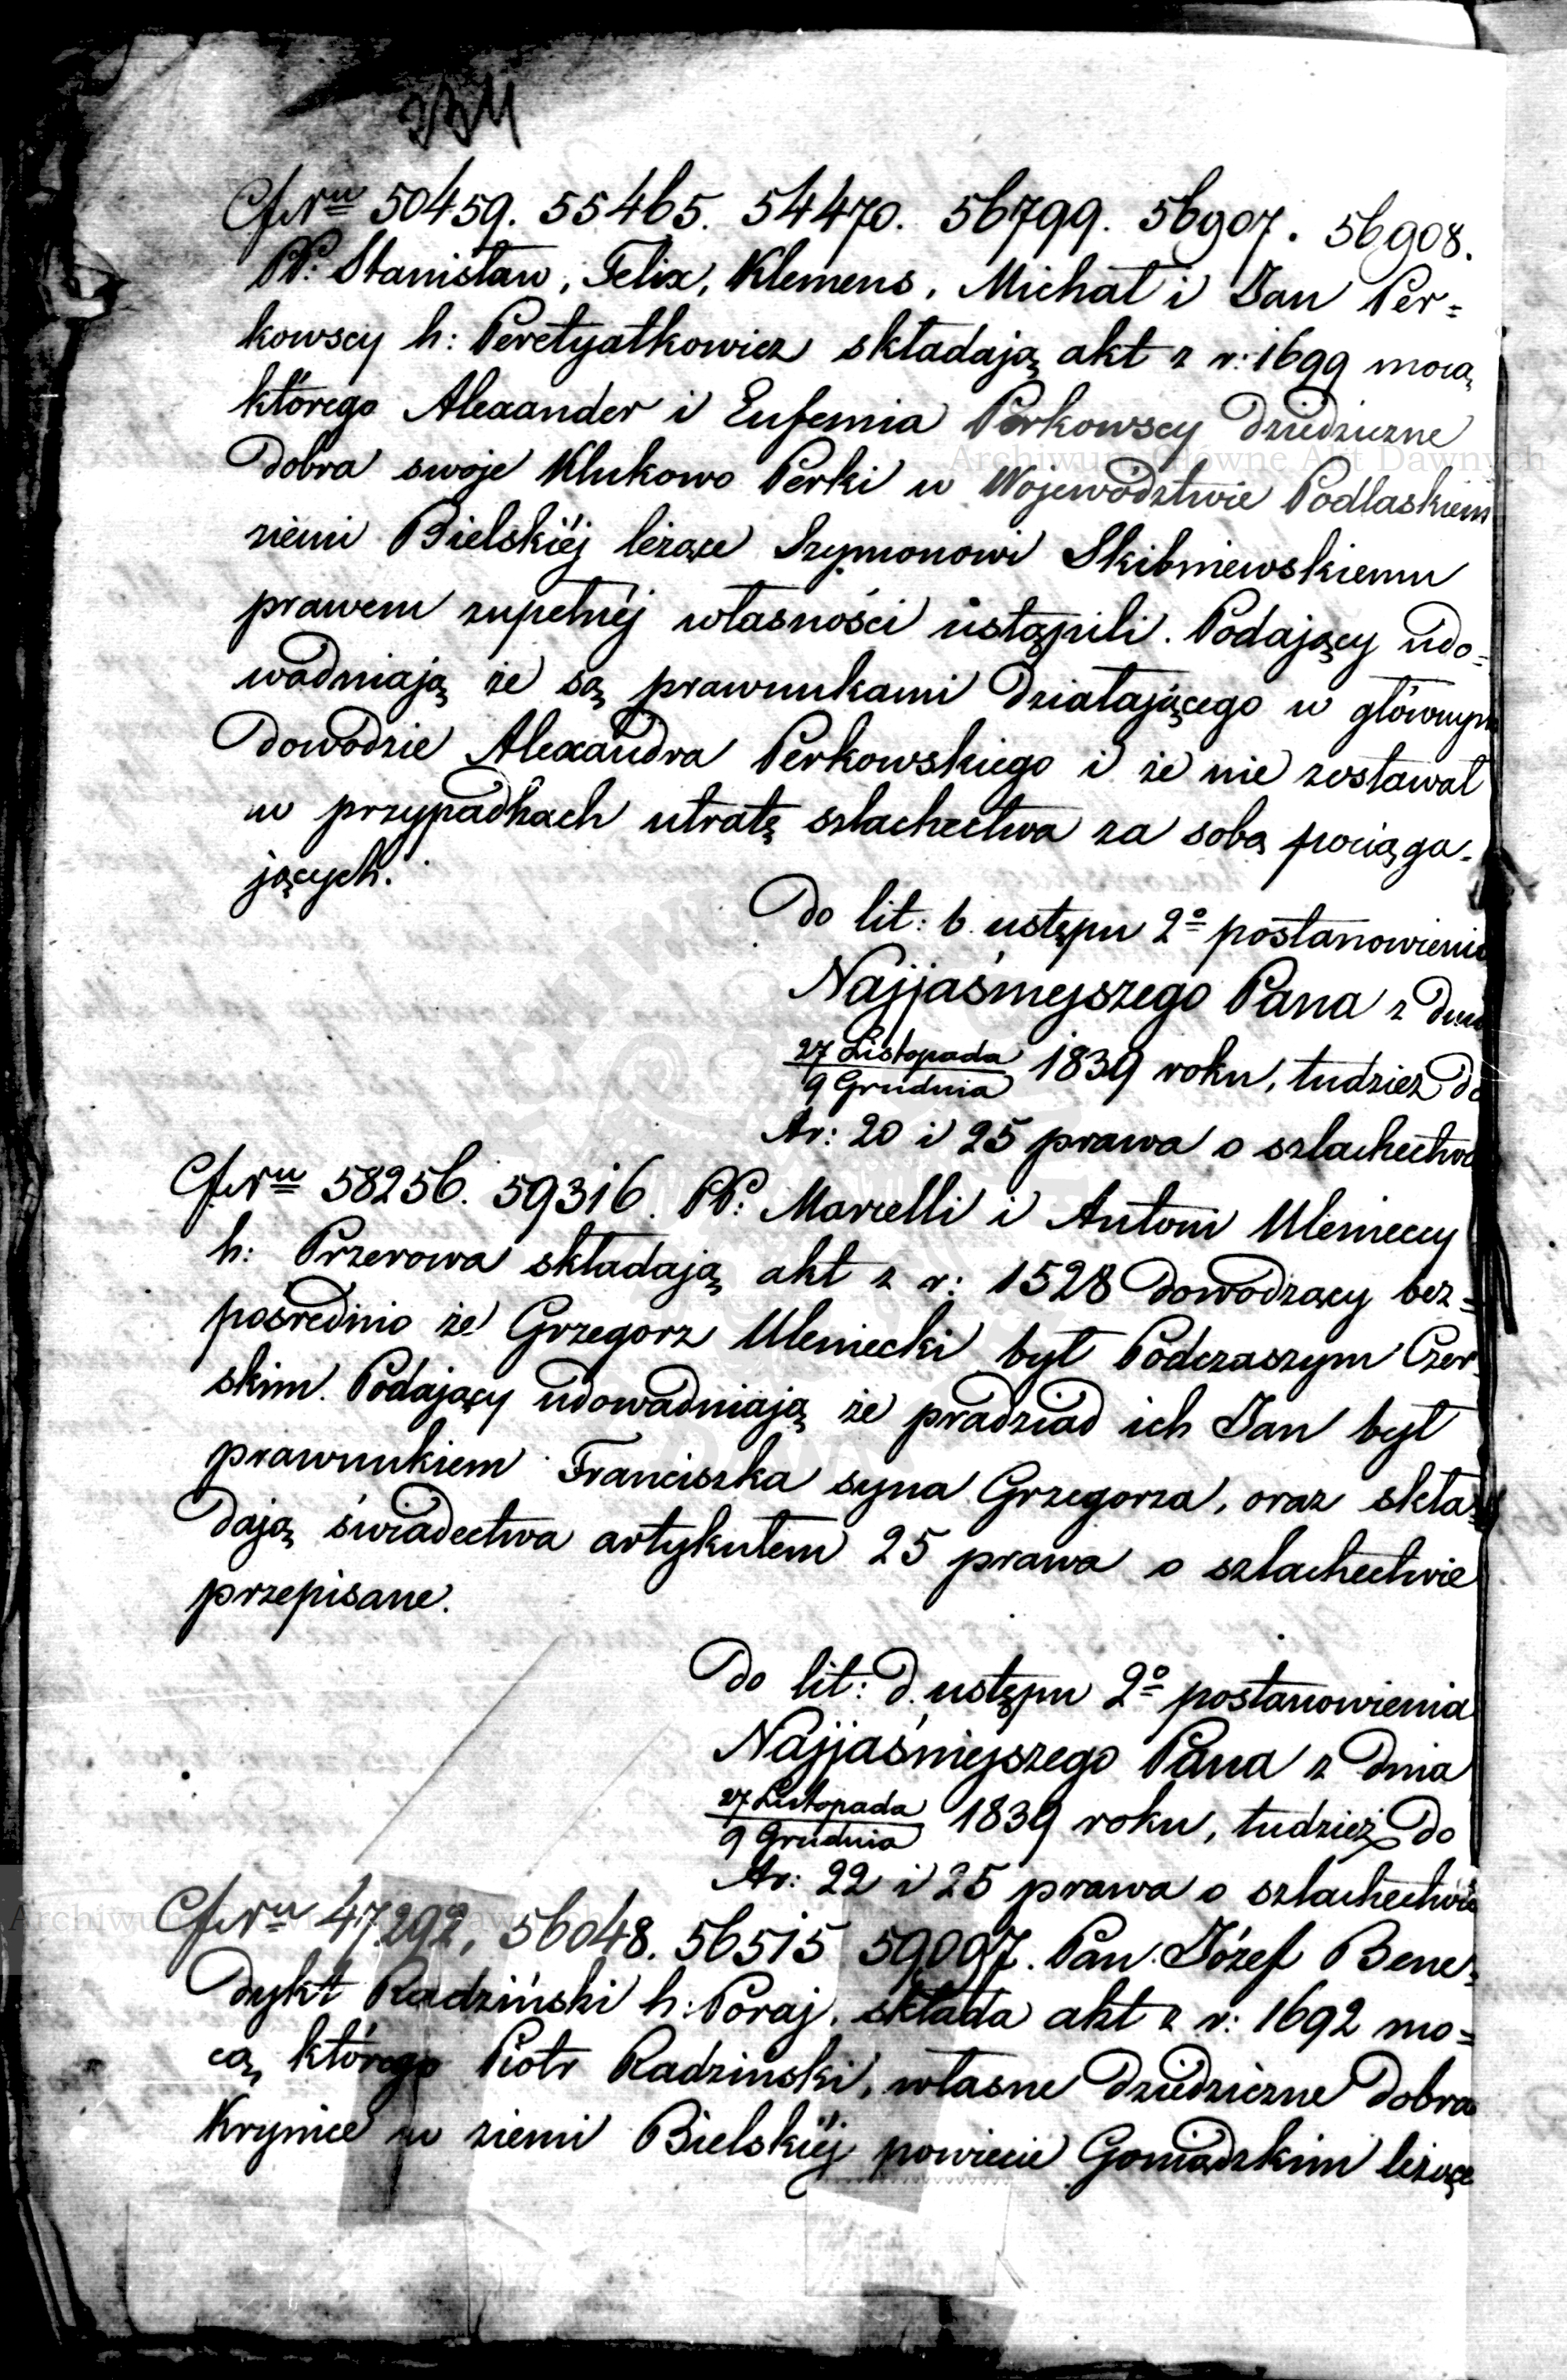 Cfr Nru 50459. 55465. 54470. 56799. 56907. 56908.
PP: Stanisław, Felix, Klemens, Michał i Jan Per=
kowscy h: Peretyatkowicz składają akt z r: 1699 mocą
którego Alexander i Eufemia Perkowscy dziedziczne
dobra swoje Klukowo Perki w Województwie Podlaskiem
ziemi Bielskiéj leżące Szymonowi Skibniewskiemu
prawem zupełnéj własności ustąpili. Podający udo=
wadniają że są prawnukami działającego w głównym
dowodzie Alexandra Perkowskiego i że nie zostawał
w przypadkach utratę szlachectwa za sobą pociąga=
jących.
Do lit: b. ustępu 2º postanowienia
Najjaśniejszego Pana z dnia
27 Listopada
9 Grudnia 1839 roku, tudzież do
Ar: 20 i 25 prawa o szlachectwie
Cfr Nru 58256. 59316. PP: Marcelli i Antoni Ulenieccy
h: Przerowa składają akt z r: 1528 dowodzący bez=
pośrednio że Grzegorz Uleniecki był Podczaszym Czer
skim. Podający udowadniają że pradziad ich Jan był
prawnukiem Franciszka syna Grzegorza, oraz skła=
dają świadectwa artykułem 25 prawa o szlachectwie
przepisane.
Do lit: d. ustępu 2º postanowienia
Najjaśniejszego Pana z dnia
27 Listopada
9 Grudnia 1839 roku, tudzież do
Ar: 22 i 25 prawa o szlachectwie
Cfr Nru 47292, 56048. 56515 59097. Pan Józef Bene=
dykt Radziński h: Poraj, składa akt z r: 1692 mo=
cą którego Piotr Radzinski, własne dziedziczne dobra
Krynice w ziemi Bielskiéj powiecie Goniądzkim leżące
Archiwum Główne Akt Dawnych